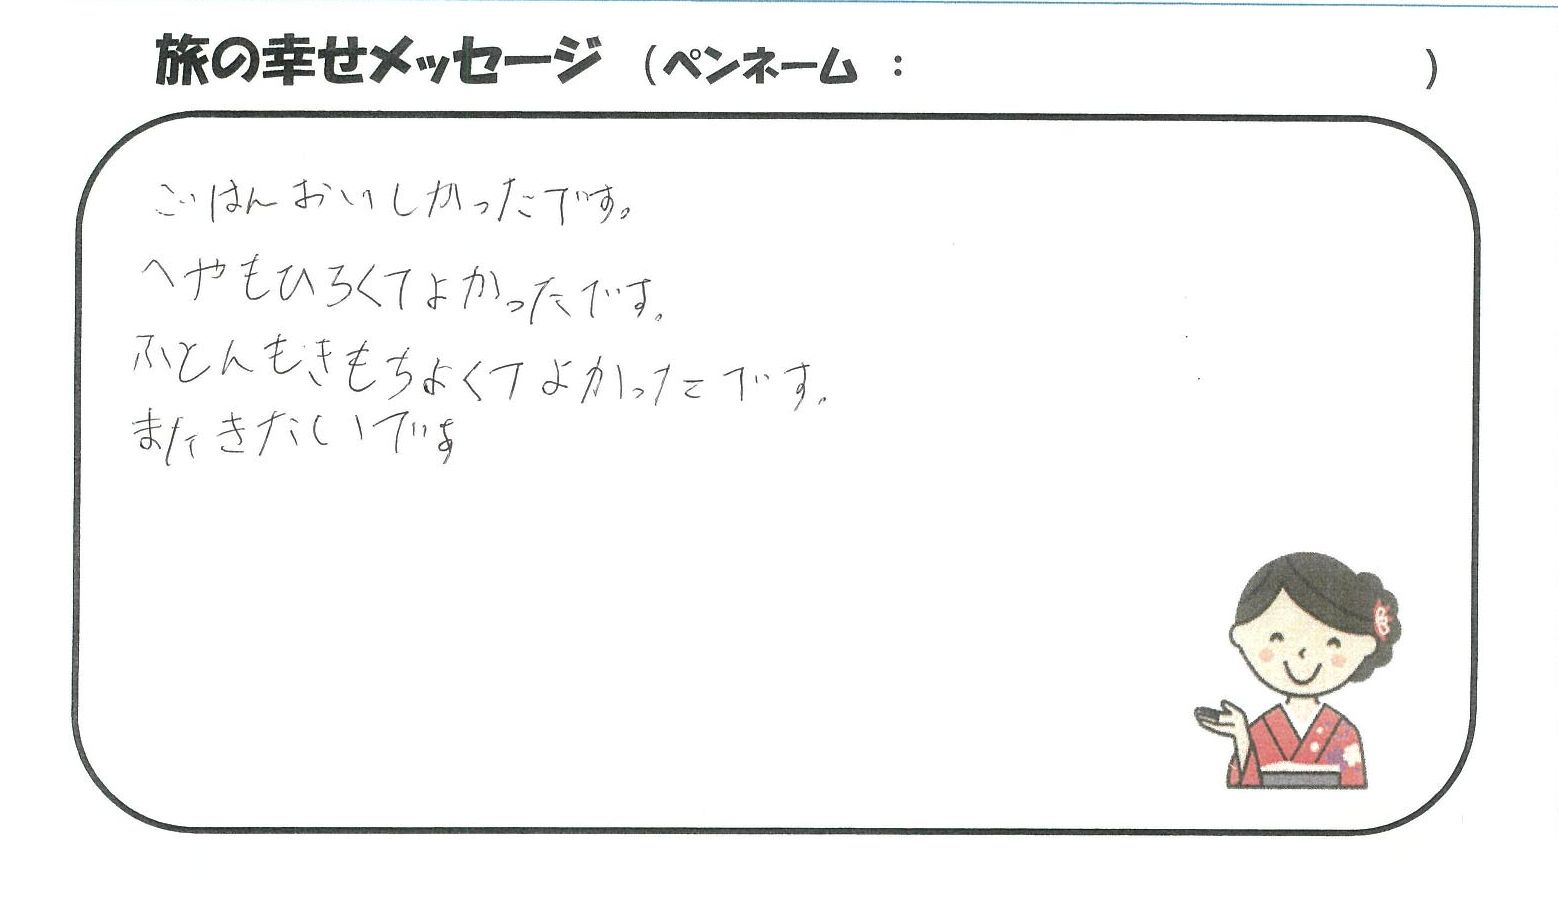 旅の幸せメッセージ （ペンネーム ： ）
ごはんおいしかったです。
へやもひろくてよかったです。
ふとんもきもちよくてよかったです。
またきたいです